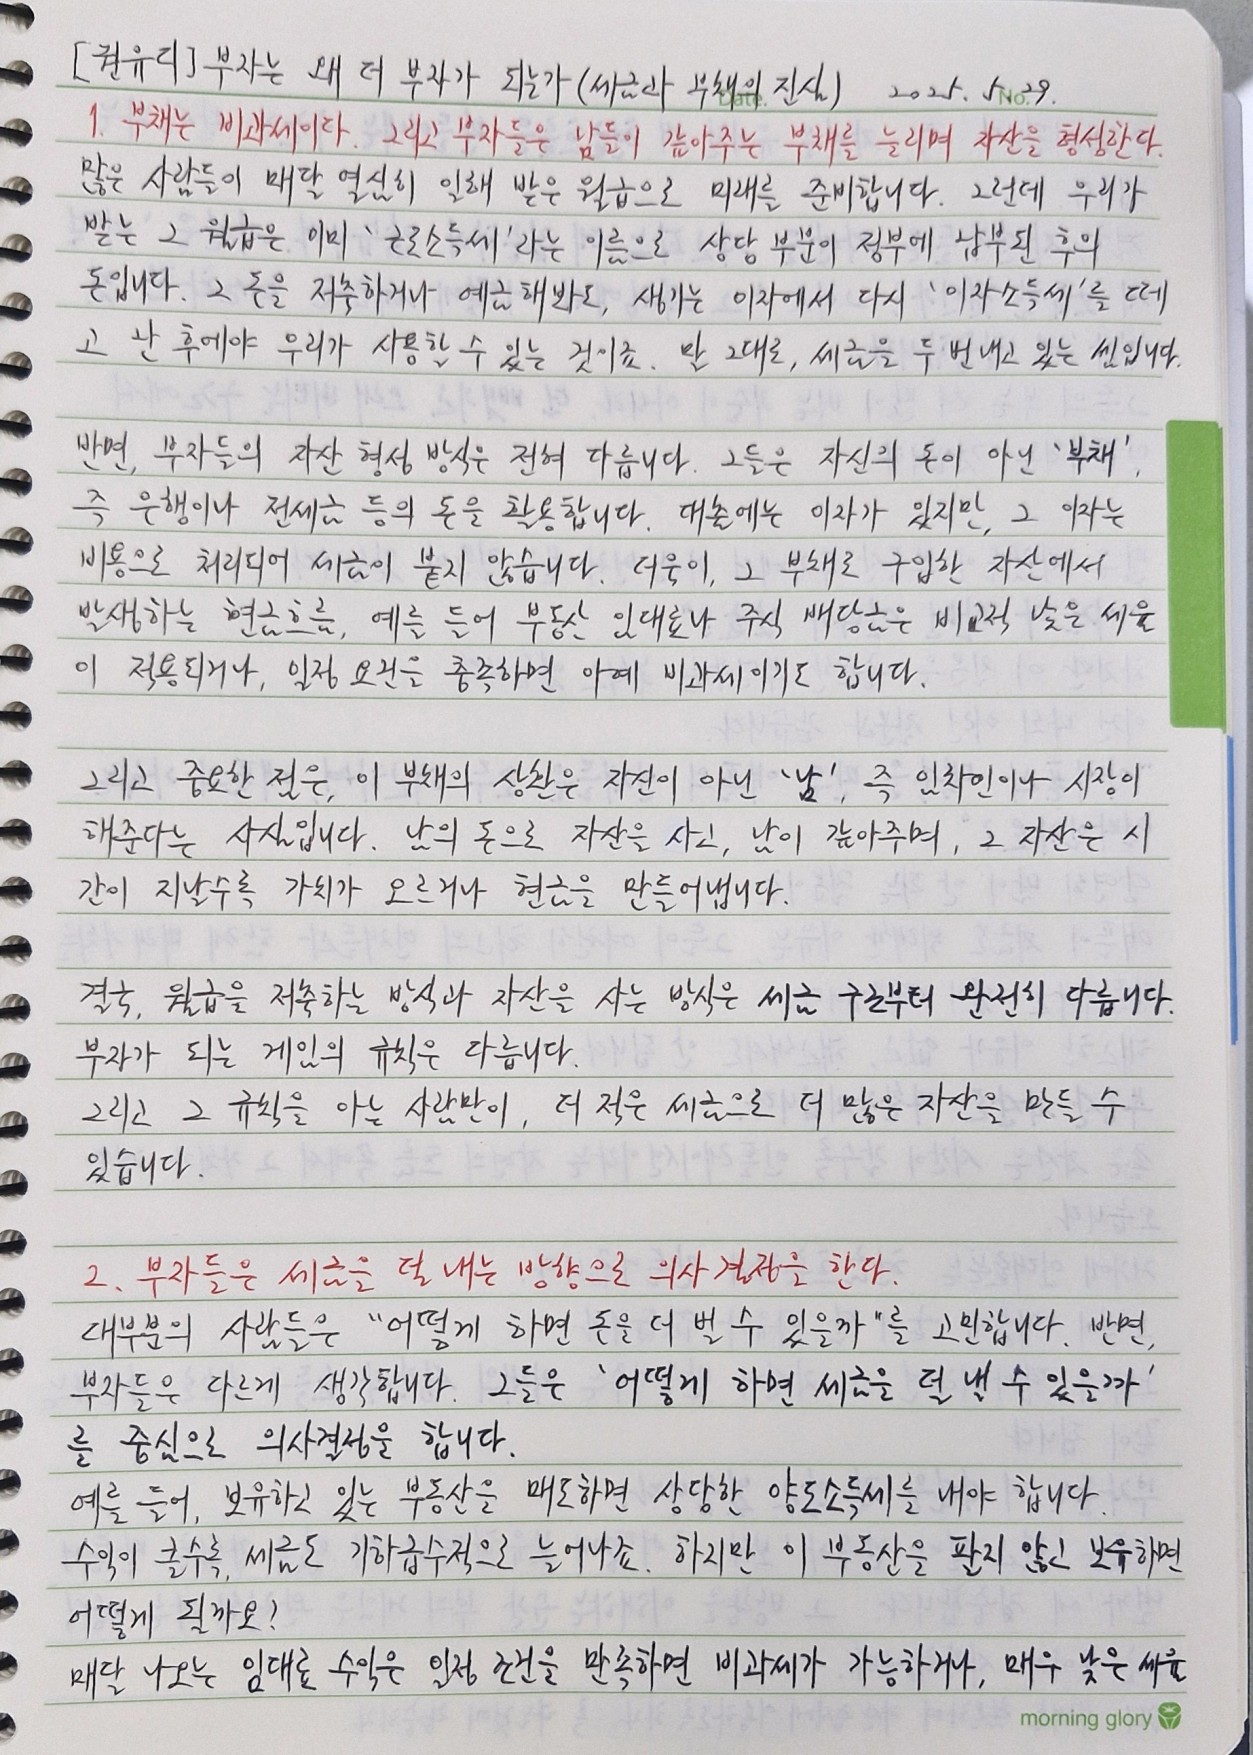 [권유디] 부자는 왜 더 부자가 되는가 (세금과 부채의 진실) 2025. 5. 29.
Date. No.
1. 부채는 비과세이다. 그리고 부자들은 남들이 갚아주는 부채를 늘리며 자산을 형성한다.
많은 사람들이 매달 열심히 일해 받은 월급으로 미래를 준비합니다. 그런데 우리가
받는 그 월급은 이미 '근로소득세'라는 이름으로 상당 부분이 정부에 납부된 후의
돈입니다. 그 돈을 저축하거나 예금해봐도, 생기는 이자에서 다시 '이자소득세'를 떼
고 난 후에야 우리가 사용할 수 있는 것이죠. 말 그대로, 세금을 두 번 내고 있는 셈입니다.
반면, 부자들의 자산 형성 방식은 전혀 다릅니다. 그들은 자신의 돈이 아닌 '부채',
즉 은행이나 전세금 등의 돈을 활용합니다. 대출에는 이자가 있지만, 그 이자는
비용으로 처리되어 세금이 붙지 않습니다. 더욱이, 그 부채로 구입한 자산에서
발생하는 현금흐름, 예를 들어 부동산 임대료나 주식 배당금은 비교적 낮은 세율
이 적용되거나, 일정 요건을 충족하면 아예 비과세이기도 합니다.
그리고 중요한 점은, 이 부채의 상환은 자신이 아닌 '남', 즉 임차인이나 시장이
해준다는 사실입니다. 남의 돈으로 자산을 사고, 남이 갚아주며, 그 자산은 시
간이 지날수록 가치가 오르거나 현금을 만들어냅니다.
결국, 월급을 저축하는 방식과 자산을 사는 방식은 세금 구조부터 완전히 다릅니다.
부자가 되는 게임의 규칙은 다릅니다.
그리고 그 규칙을 아는 사람만이, 더 적은 세금으로 더 많은 자산을 만들 수
있습니다.
2. 부자들은 세금을 덜 내는 방향으로 의사결정을 한다.
대부분의 사람들은 "어떻게 하면 돈을 더 벌 수 있을까"를 고민합니다. 반면,
부자들은 다르게 생각합니다. 그들은 '어떻게 하면 세금을 덜 낼 수 있을까'
를 중심으로 의사결정을 합니다.
예를 들어, 보유하고 있는 부동산을 매도하면 상당한 양도소득세를 내야 합니다.
수익이 클수록, 세금도 기하급수적으로 늘어나죠. 하지만 이 부동산을 팔지 않고 보유하면
어떻게 될까요?
매달 나오는 임대료 수익은 일정 조건을 만족하면 비과세가 가능하거나, 매우 낮은 세율
morning glory